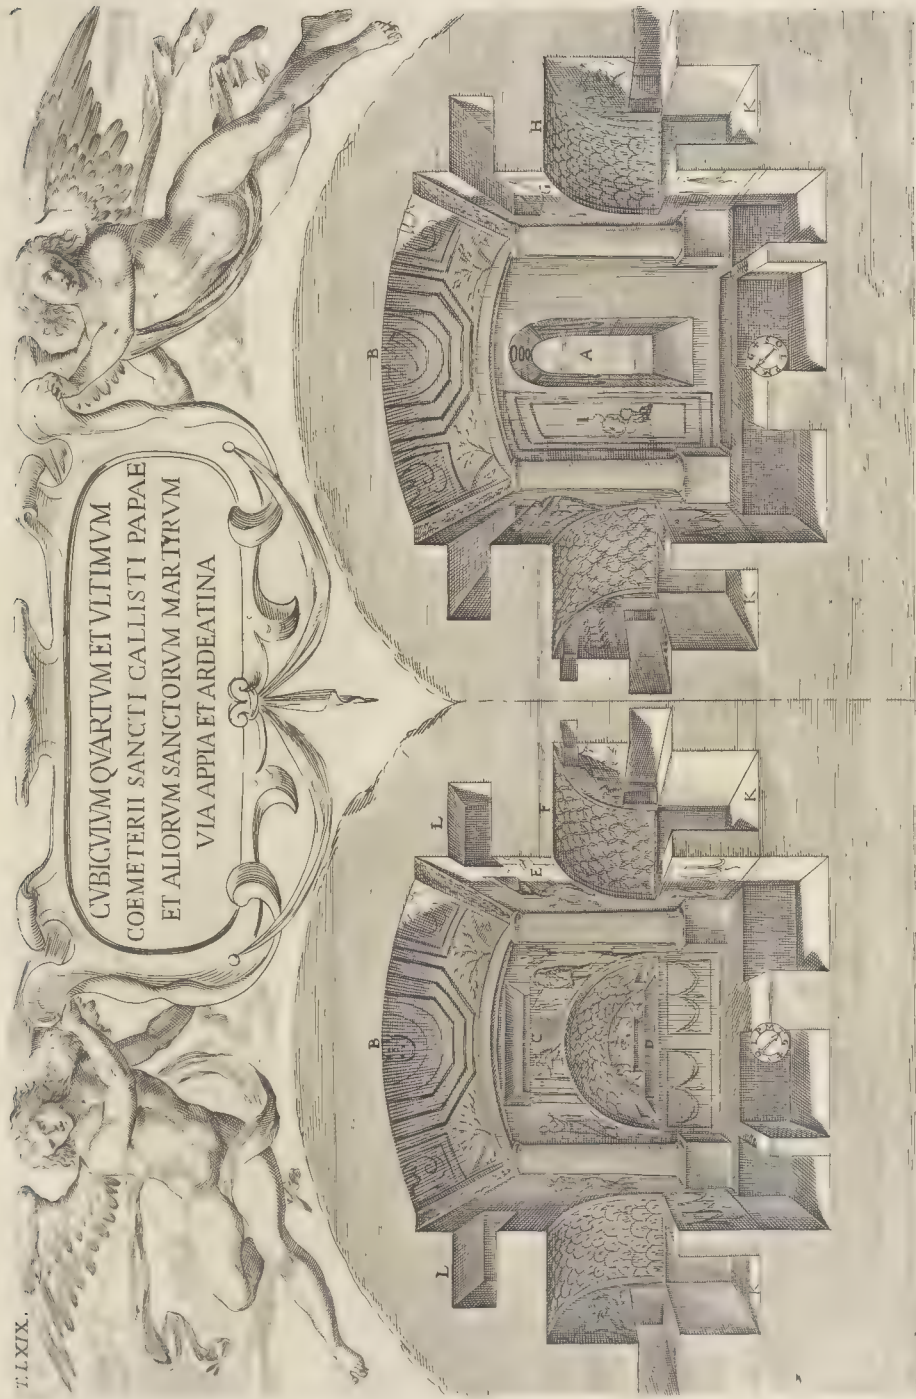 T. LXIX.
CVBICVLVM QVARTVM ET VLTIMVM
COEMETERII SANCTI CALLISTI PAPAE
ET ALIORVM SANCTORVM MARTYRVM
VIA APPIA ET ARDEATINA
B
L
L
C
E
F
D
K
K
B
G
H
A
I
K
K